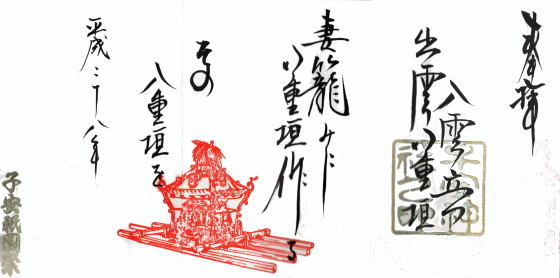 奉拝
八雲立つ
出雲八重垣
妻籠みに
八重垣作る
その
八重垣を
平成二十八年
子安祇園祭